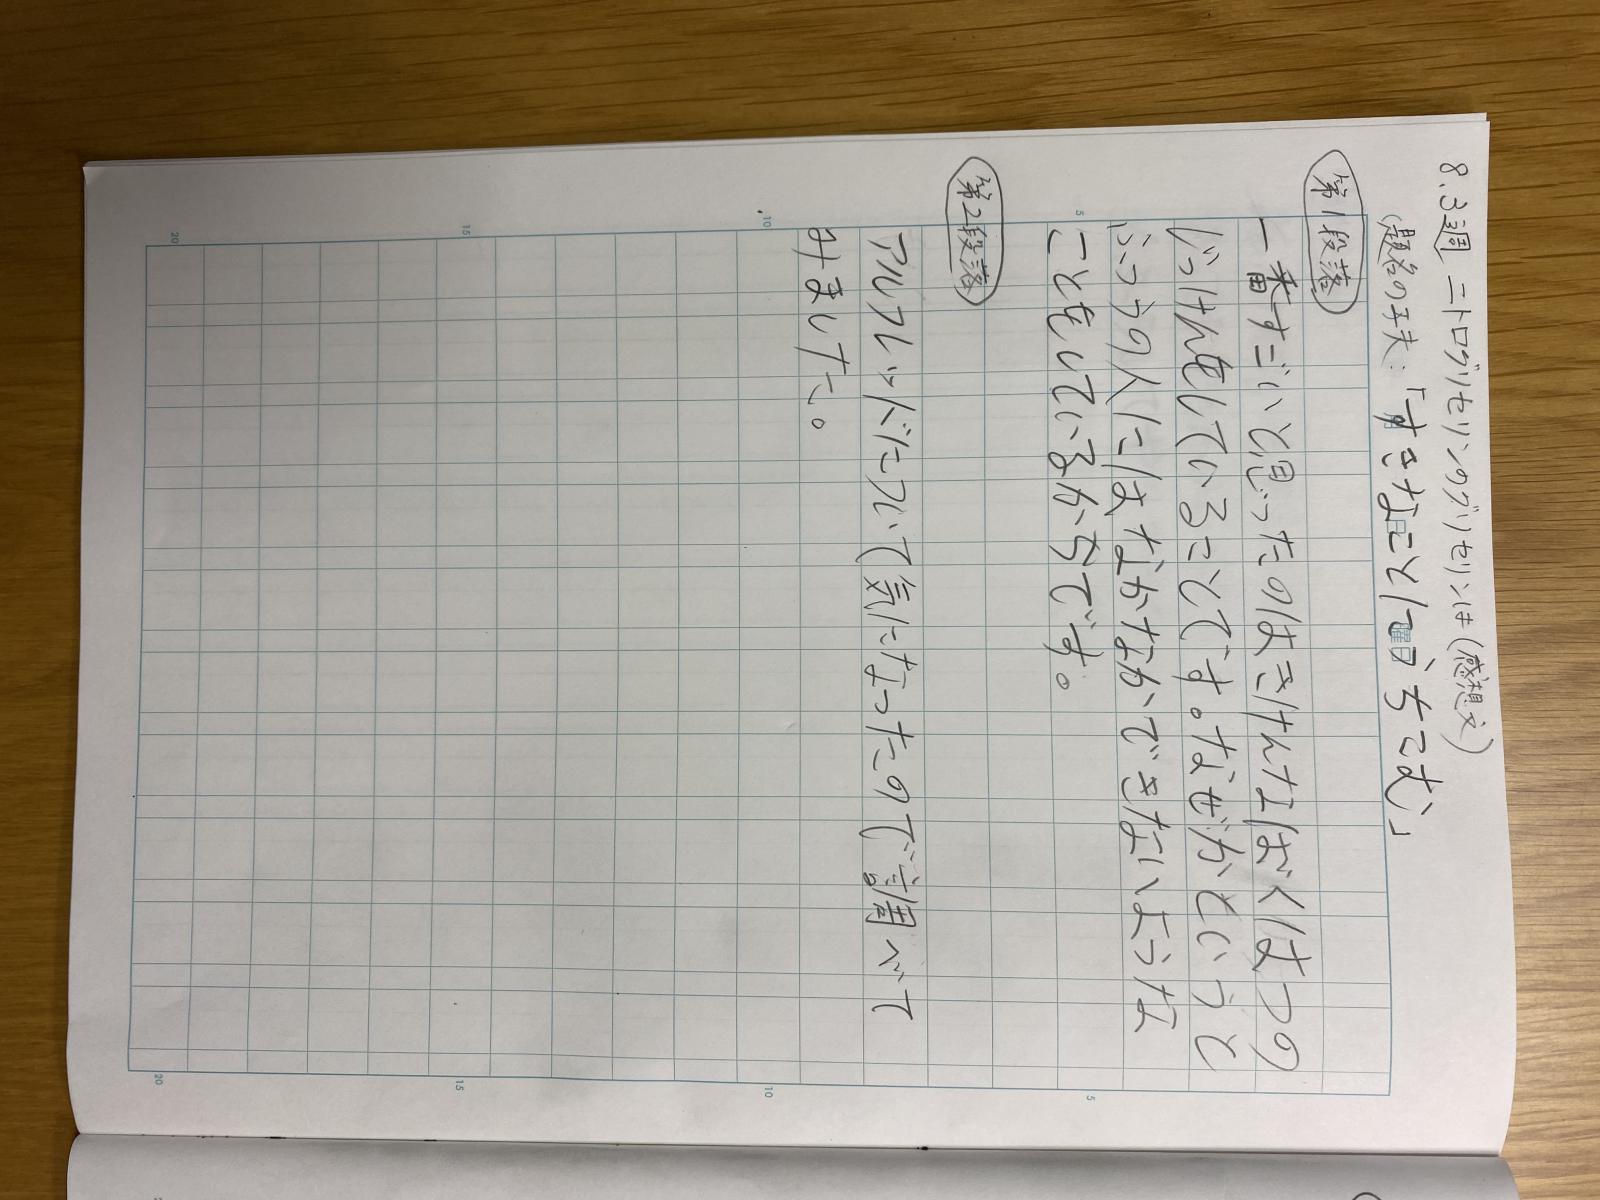 8.3週 ニトログリセリンのグリセリンは(感想文)
(題名の工夫:「すきなこと」
第1段落
一番すごいと思ったのはきけんなばくはつの
じっけんをしていることです。なぜかというと
ふつうの人にはなかなかできないような
ことをしているからです。
第2段落
アルフレッドについて気になったので調べて
みました。
5
10
15
20
5
10
15
20